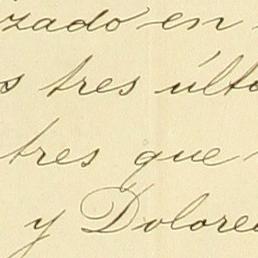 zado en
s tres últ
tres que
y Dolore